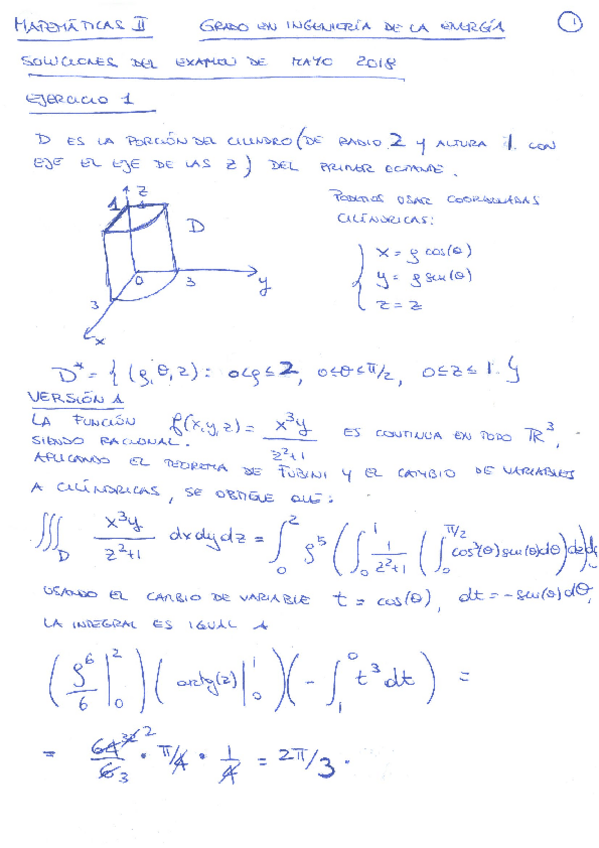 MATEMÁTICAS II GRADO EN INGENIERÍA DE LA ENERGÍA 1
SOLUCIONES DEL EXAMEN DE MAYO 2018
EJERCICIO 1
D ES LA PORCIÓN DEL CILINDRO (DE RADIO 2 Y ALTURA 1. CON
EJE EL EJE DE LAS Z) DEL PRIMER OCTANTE.
PODEMOS USAR COORDENADAS
CILÍNDRICAS:
x = ρ cos(θ)
y = ρ sen(θ)
z = z
1 z
D
0 3 y
3
x
D* = { (ρ, θ, z) : 0<ρ≤2, 0≤θ≤π/2, 0≤z≤1. }
VERSIÓN A
LA FUNCIÓN f(x,y,z) = x³y / z²+1 ES CONTINUA EN TODO ℝ³,
SIENDO RACIONAL.
APLICANDO EL TEOREMA DE FUBINI Y EL CAMBIO DE VARIABLES
A CILÍNDRICAS, SE OBTIENE QUE:
∭_D x³y / z²+1 dxdydz = ∫₀² ρ⁵ ( ∫₀¹ 1/z²+1 ( ∫₀^π/2 cos³(θ)sen(θ)dθ ) dz ) dρ
USANDO EL CAMBIO DE VARIABLE t = cos(θ), dt = -sen(θ)dθ,
LA INTEGRAL ES IGUAL A
( ρ⁶/6 |₀² ) ( arctg(z) |₀¹ ) ( - ∫₁⁰ t³ dt ) =
= 64 32 2 / 6 3 · π/4 · 1/4 = 2π/3 .